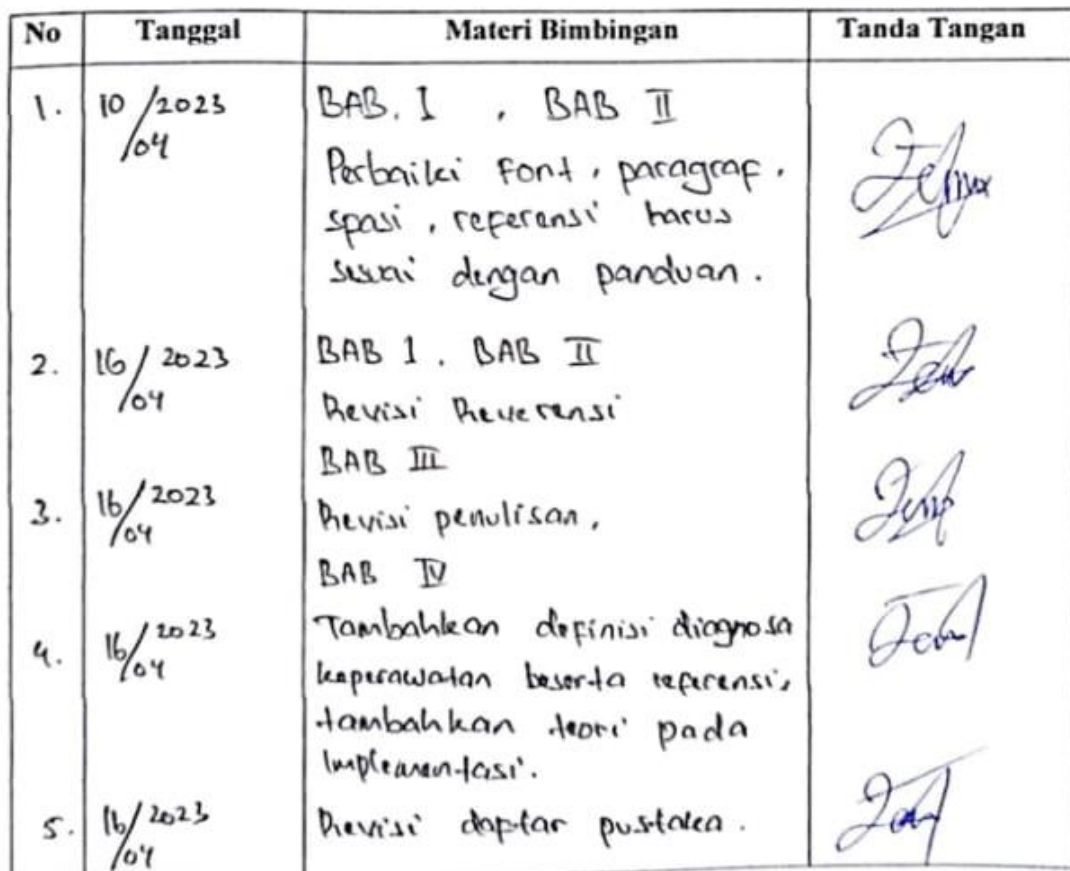 No Tanggal Materi Bimbingan Tanda Tangan
1. 10/2023 BAB. I , BAB II
/04
Perbaiki Font, paragraf,
spasi, referensi harus
sesuai dengan panduan.
2. 16/2023 BAB 1. BAB II
/04
Revisi Reverensi
BAB III
3. 16/2023 Revisi penulisan,
/04
BAB IV
4. 16/2023 Tambahkan definisi diagnosa
/04 keperawatan beserta referensi,
tambahkan teori pada
Implementasi.
5. 16/2023 Revisi daftar pustaka.
/04